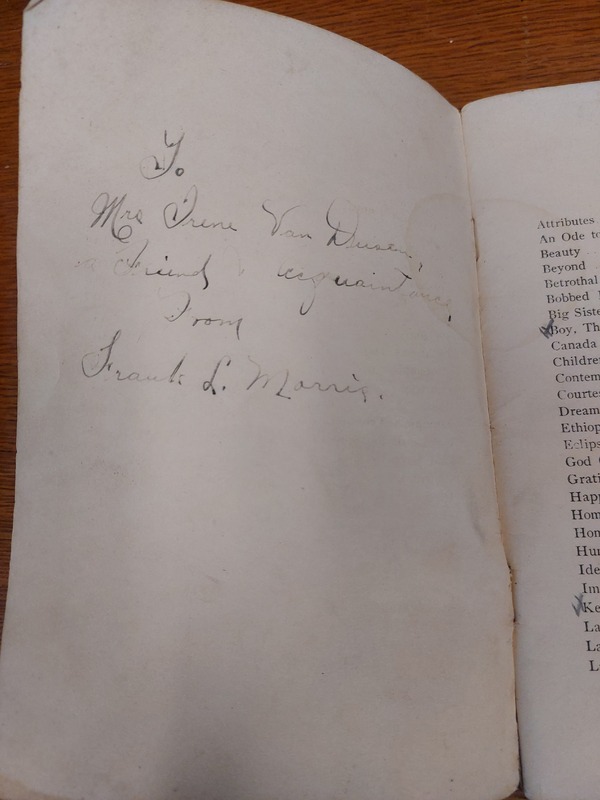 To
Mrs Irene Van Dusen,
a Friend & acquaintance,
From
Frank L. Morris.
Attributes
An Ode to
Beauty
Beyond
Betrothal
Bobbed
Big Siste
Boy, Th
Canada
Children
Contem
Courtes
Dream
Ethiop
Eclips
God
Grati
Happ
Hom
Hon
Hun
Ide
Im
Ke
La
La
L